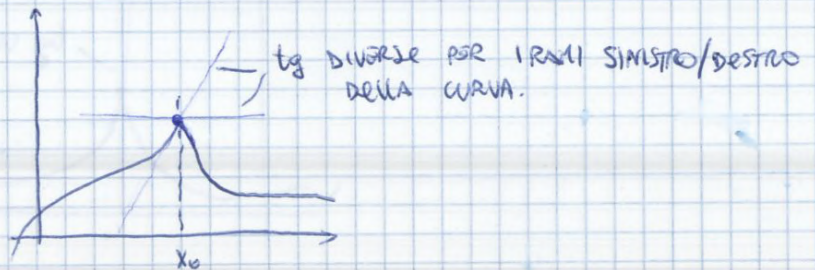 tg DIVERSE PER I RAMI SINISTRO/DESTRO
DELLA CURVA.
x₀